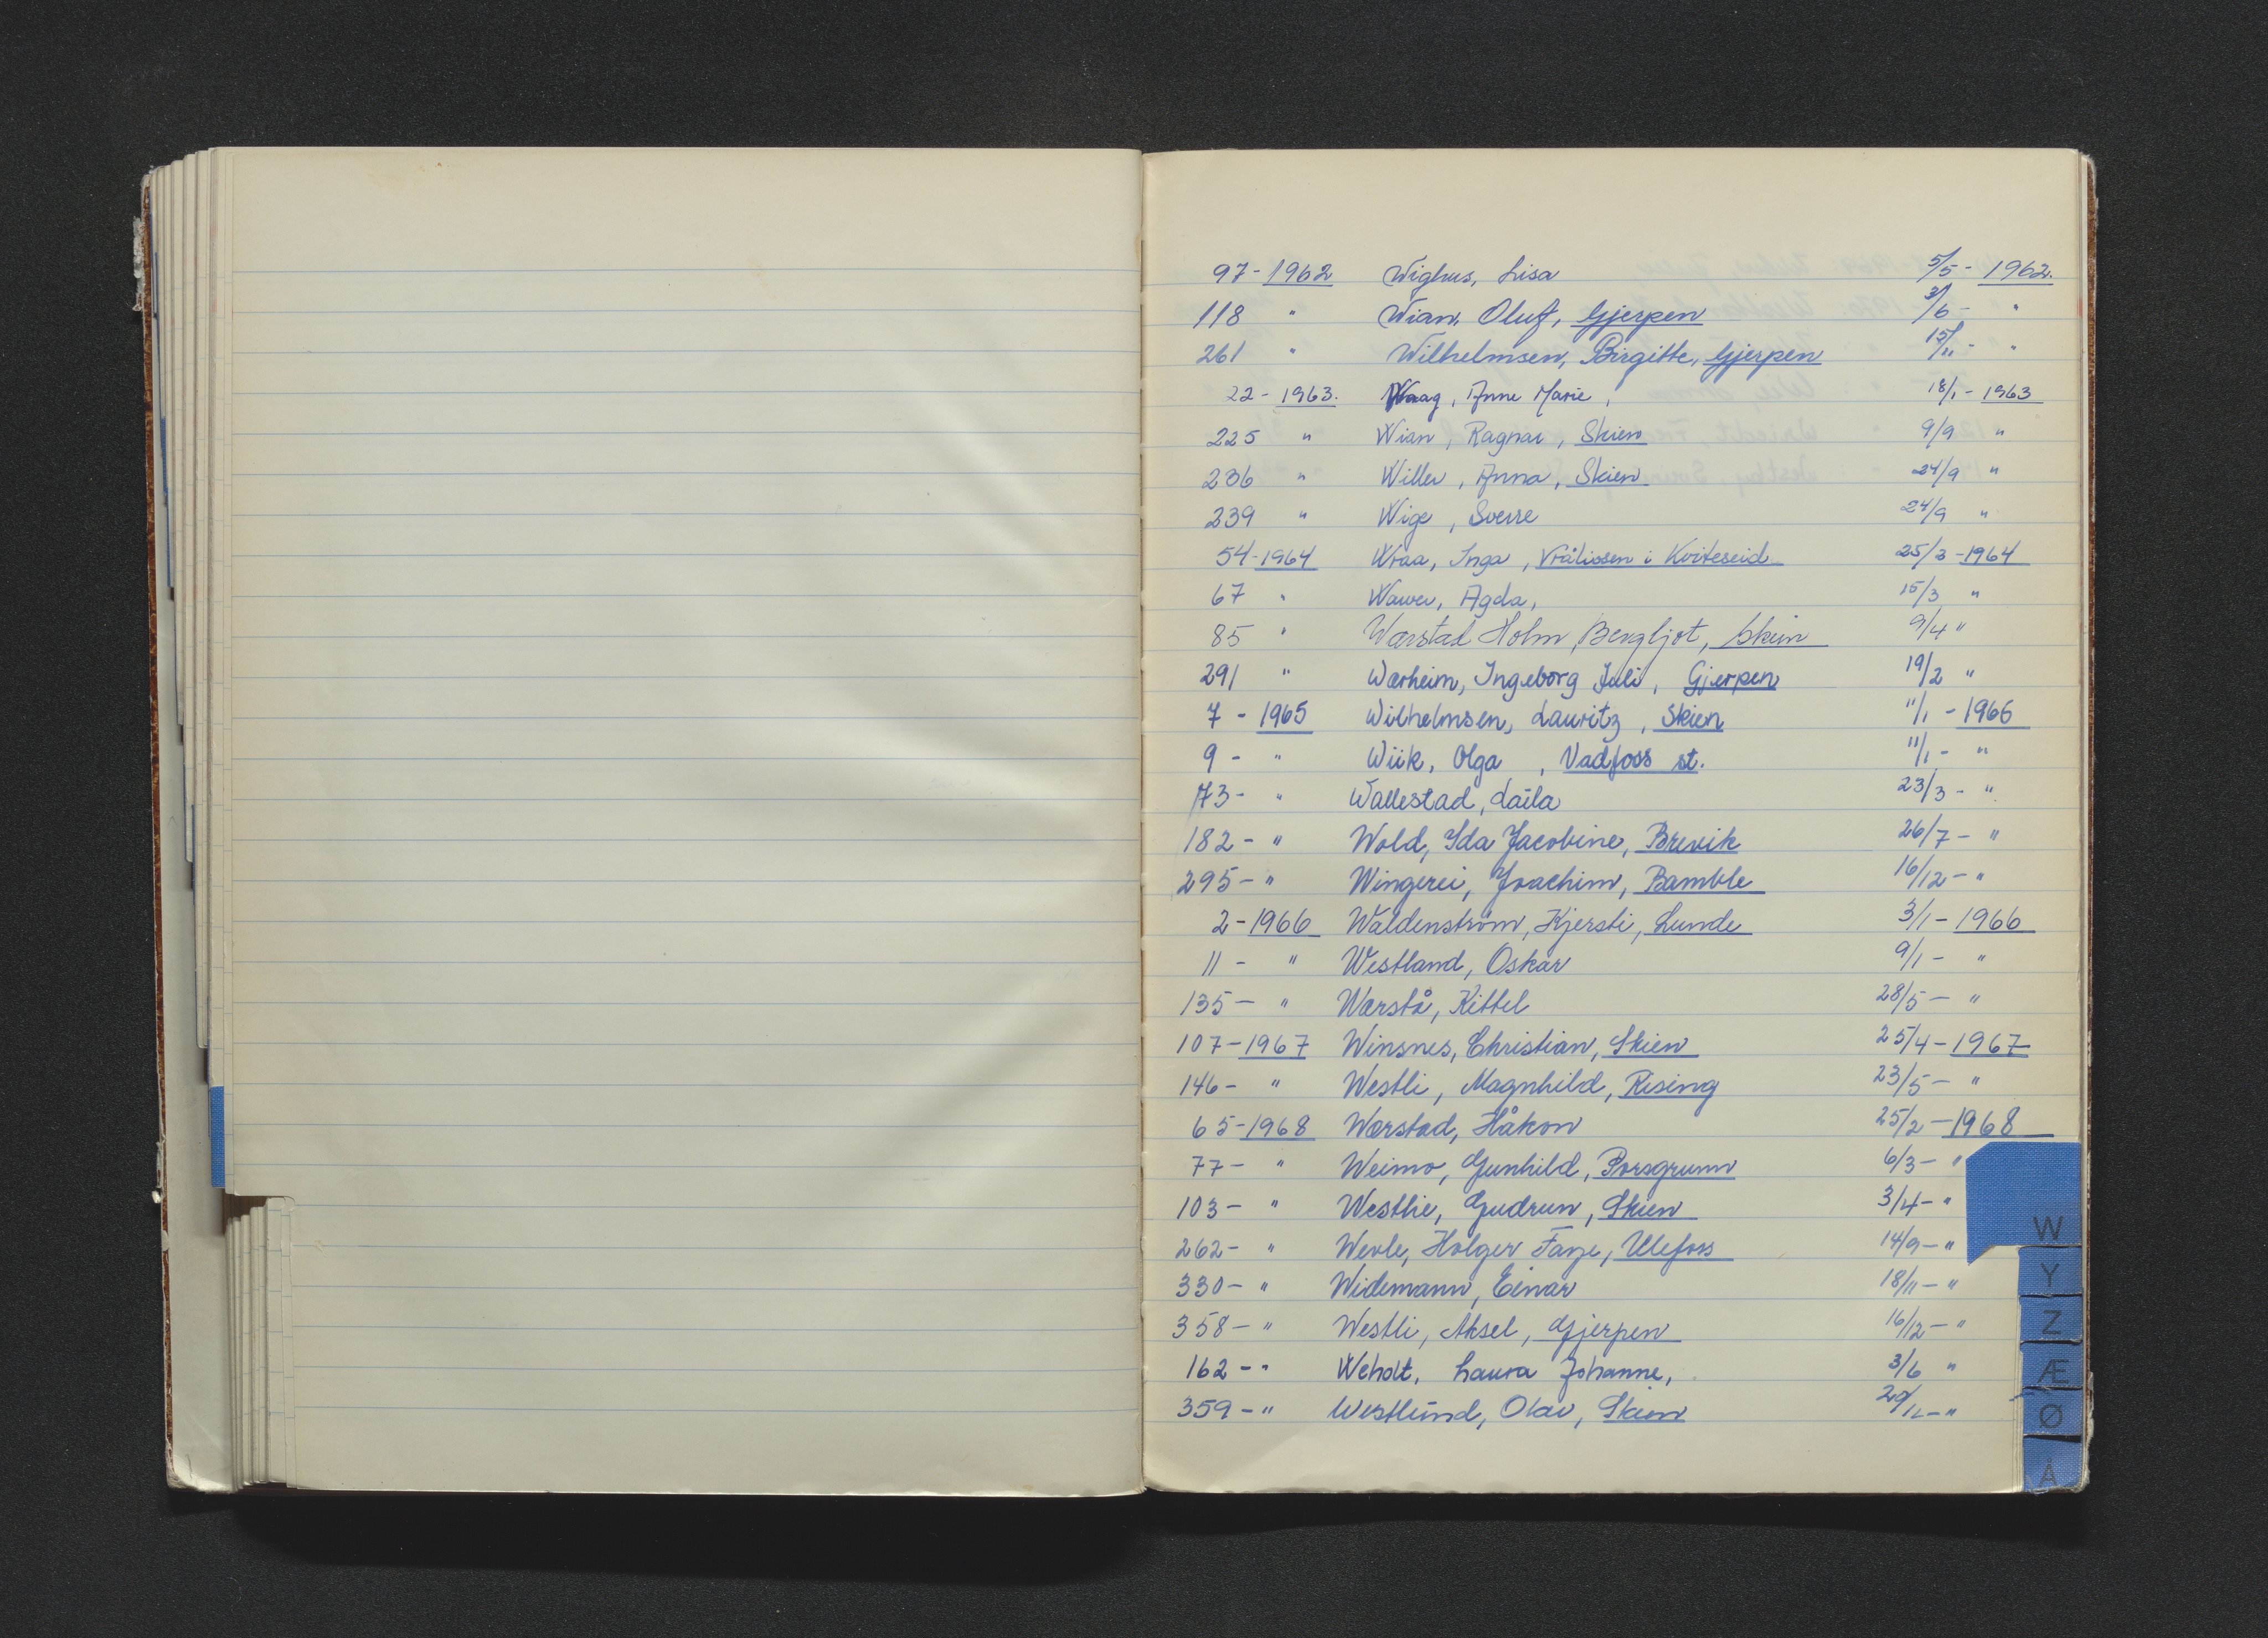 97 - 1962 Wighus, Lisa 5/5 - 1962.
118 " Wian, Oluf, Gjerpen 3/6 - "
261 " Wilhelmsen, Birgitte, Gjerpen 15/11 - "
22 - 1963. Waag, Anne Marie, 18/1 - 1963
225 " Wian, Ragnar, Skien 9/9 "
236 " Willer, Anna, Skien 24/9 "
239 " Wige, Sverre 24/9 "
54 - 1964 Wraa, Inga, Vråliosen i Kviteseid 25/3 - 1964
67 " Wawer, Agda, 15/3 "
85 " Wærstad Holm, Bergljot, Skien 9/4 "
291 " Wærheim, Ingeborg Juli, Gjerpen 19/2 "
7 - 1965 Wilhelmsen, Lauritz, Skien 11/1 - 1965
9 - " Wiik, Olga, Vadfoss st. 11/1 - "
73 - " Wallestad, Laila 23/3 - "
182 - " Wold, Ida Jacobine, Brevik 26/7 - "
295 - " Wingerei, Joachim, Bamble 16/12 - "
2 - 1966 Waldenstrøm, Kjersti, Lunde 3/1 - 1966
11 - " Westland, Oskar 9/1 - "
135 - " Wærstå, Kittel 28/5 - "
107 - 1967 Winsnes, Christian, Skien 25/4 - 1967
146 - " Westli, Magnhild, Rising 23/5 - "
65 - 1968 Wærstad, Håkon 25/2 - 1968
77 - " Weimo, Gunhild, Porsgrunn 6/3 - "
103 - " Westlie, Gudrun, Skien 3/4 - "
262 - " Wevle, Holger Farge, Ulefoss 14/9 - "
330 - " Widemann, Einar 18/11 - "
358 - " Westli, Aksel, Gjerpen 16/12 - "
162 - " Weholt, Laura Johanne, 3/6 "
359 - " Westlund, Olav, Skien - "
W
Y
Z
Æ
Ø
Å